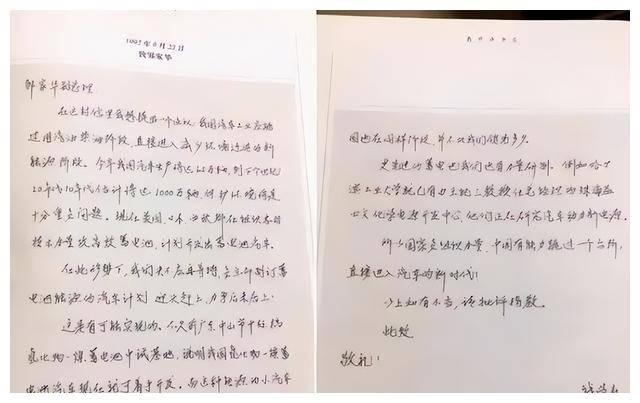 1992年8月22日
致邹家华
邹家华副总理:
在这封信里我想提出一个建议:我国汽车工业应跳
过用汽油柴油阶段,直接进入减少环境污染的新
能源阶段。今年我国汽车生产将达 万辆,到下个世纪
20年代10年代估计将达1000万辆,保护环境将是
十分重要问题。现在美国、日本、西欧都在组织各自的
技术力量攻高效蓄电池,计划开发出蓄电池汽车。
在此形势下,我们决不应再等待,要立即制订蓄
电池能源的汽车计划,迎头赶上,力争后来居上!
这是有可能实现的。不久前广东中山市中 搞
氢化物-镍蓄电池中试基地,说明我国氢化物-镍蓄
电池汽车现在就可着手开发。而这种能源的小汽车
国也在同样阶段,并不比我们领先多少。
更先进的蓄电池我们也有力量研制。例如哈尔
滨工业大学就已有 教授任总经理的珠海益
士文化学电源开发中心,他们正在研究汽车动力新电源。
所以国家应组织力量,中国有能力跳过一个台阶,
直接进入汽车的新时代!
以上如有不当,请批评指教。
此致
敬礼!